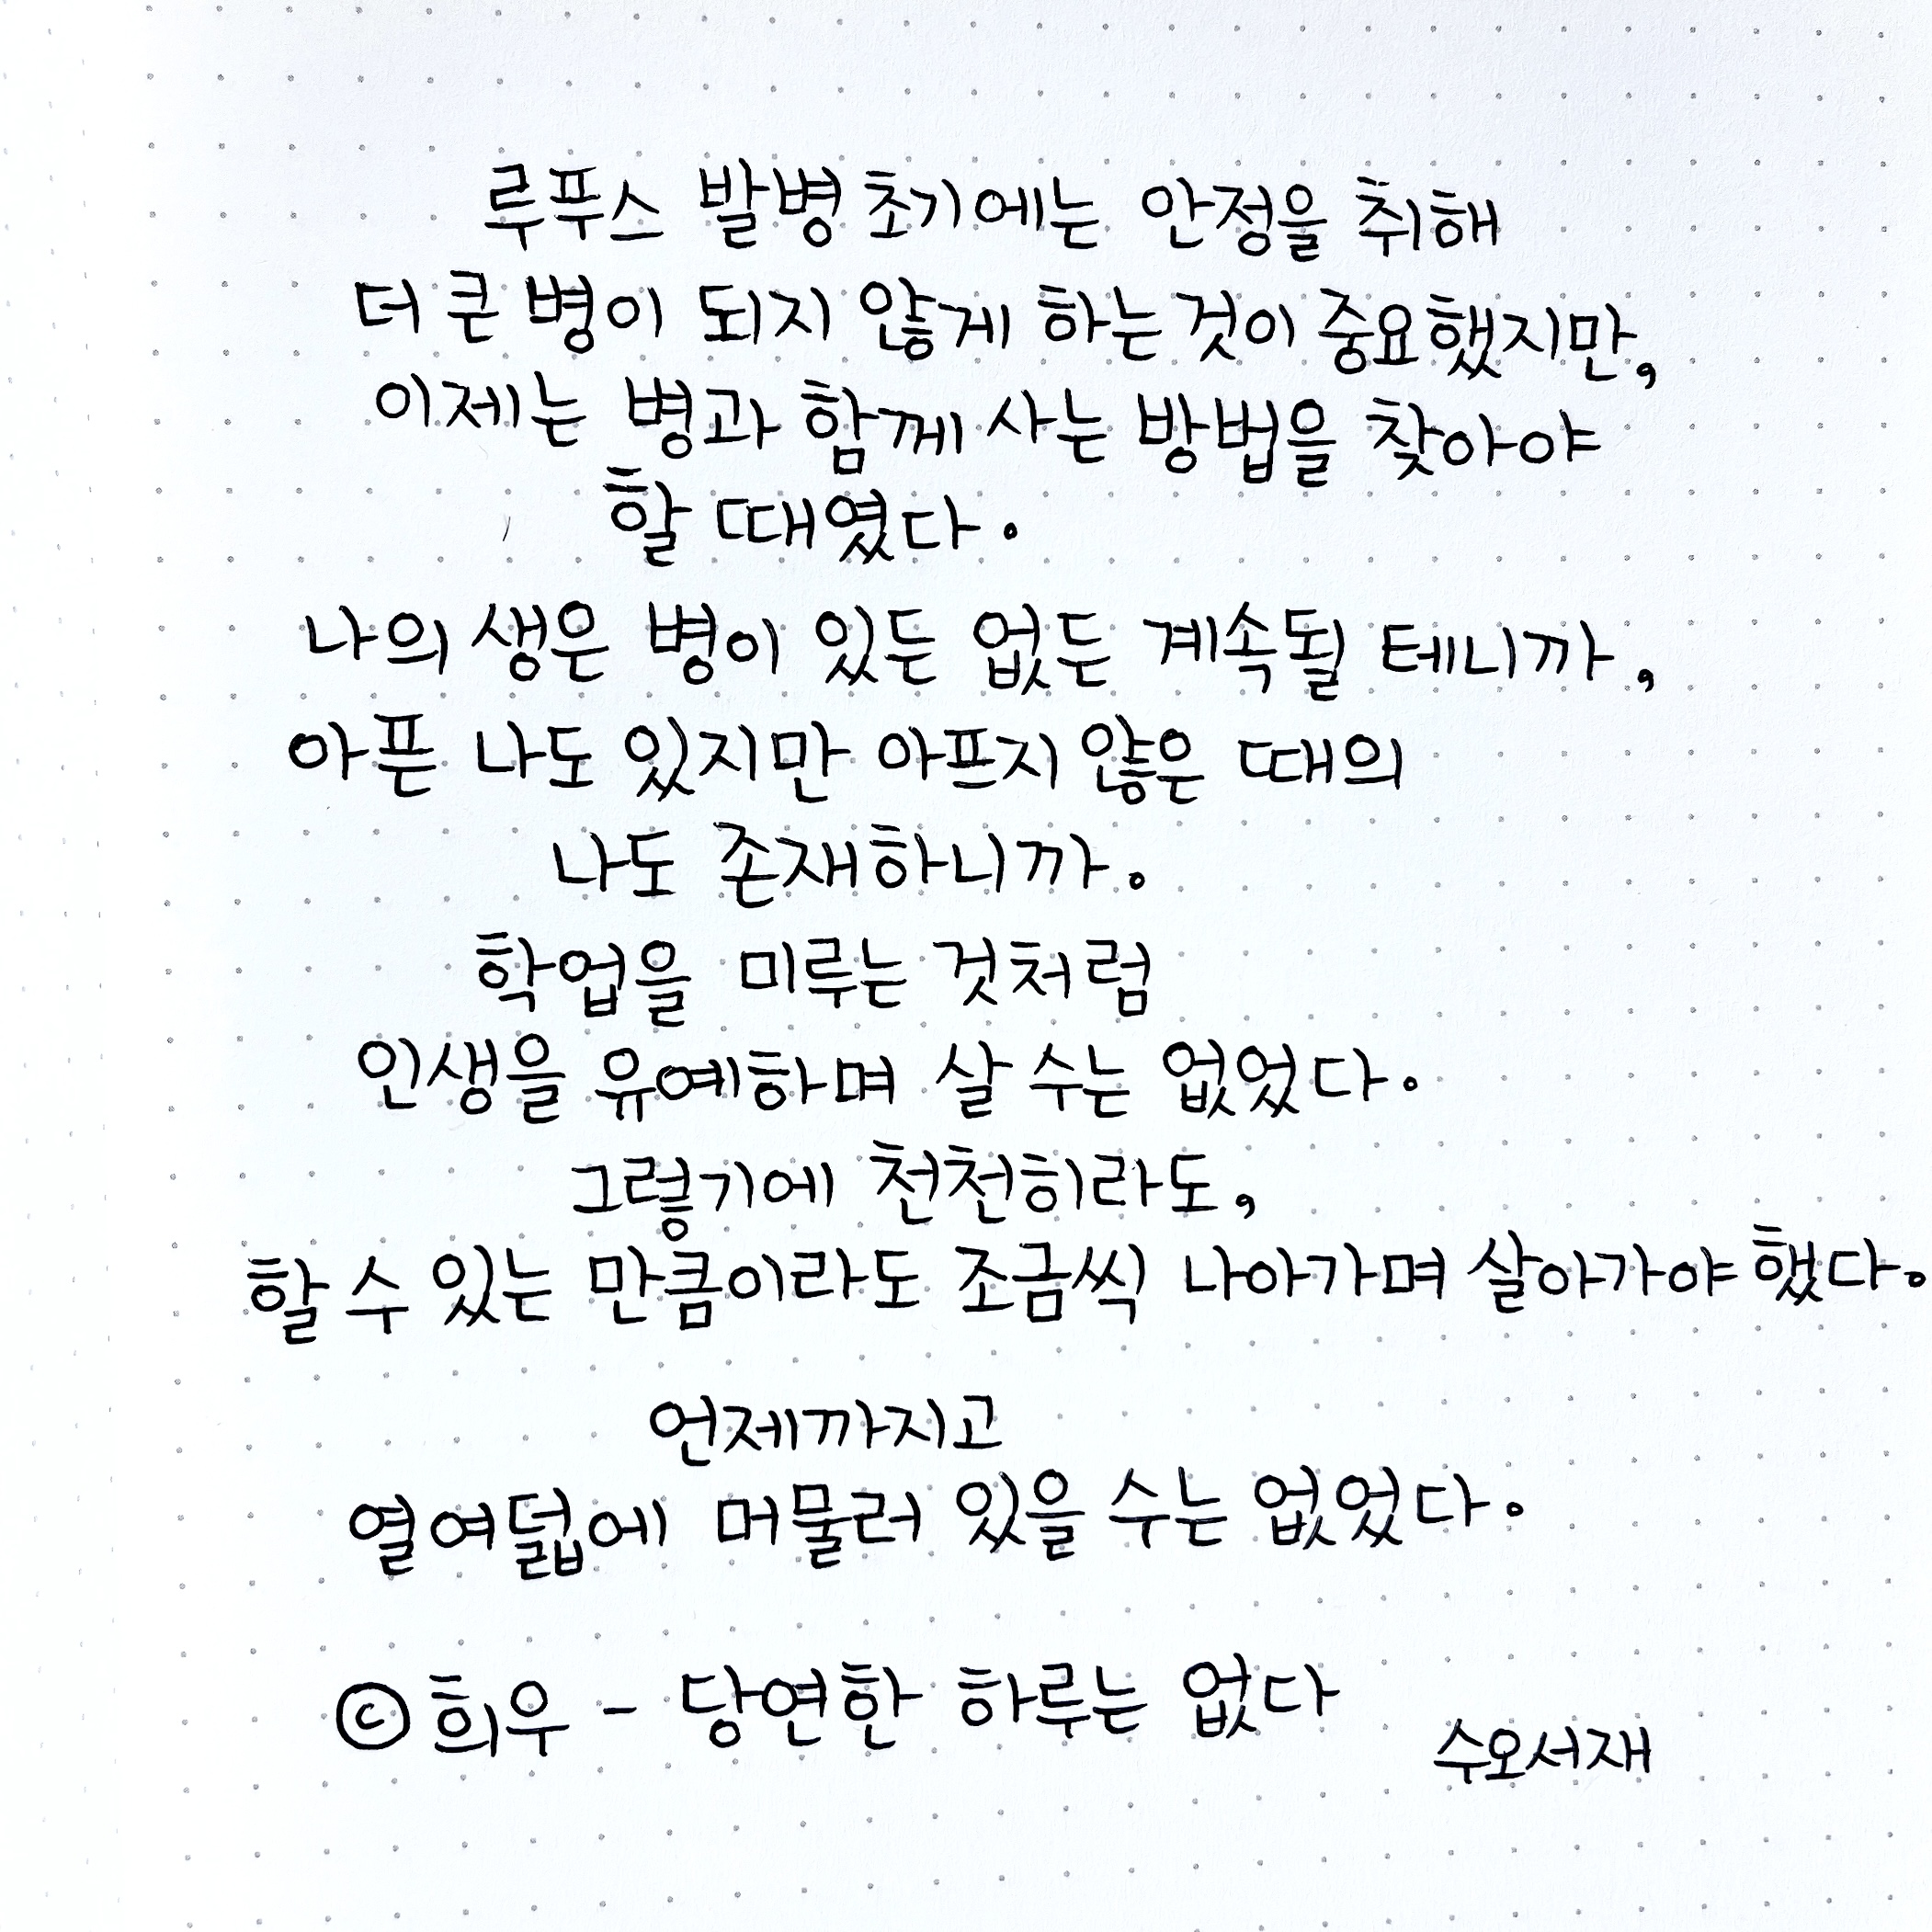 루푸스 발병 초기에는 안정을 취해
더 큰 병이 되지 않게 하는 것이 중요했지만,
이제는 병과 함께 사는 방법을 찾아야
할 때였다.
나의 생은 병이 있든 없든 계속될 테니까,
아픈 나도 있지만 아프지 않은 때의
나도 존재하니까.
학업을 미루는 것처럼
인생을 유예하며 살 수는 없었다.
그렇기에 천천히라도,
할 수 있는 만큼이라도 조금씩 나아가며 살아가야 했다.
언제까지고
열여덟에 머물러 있을 수는 없었다.
ⓒ 희우 - 당연한 하루는 없다
수오서재